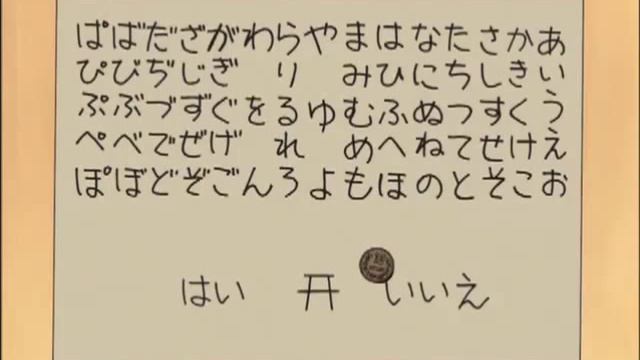 ぱばだざがわらやまはなたさかあ
ぴびぢじぎ り みひにちしきい
ぷぶづずぐをるゆむふぬつすくう
ぺべでぜげ れ めへねてせけえ
ぽぼどぞごんろよもほのとそこお
はい いいえ